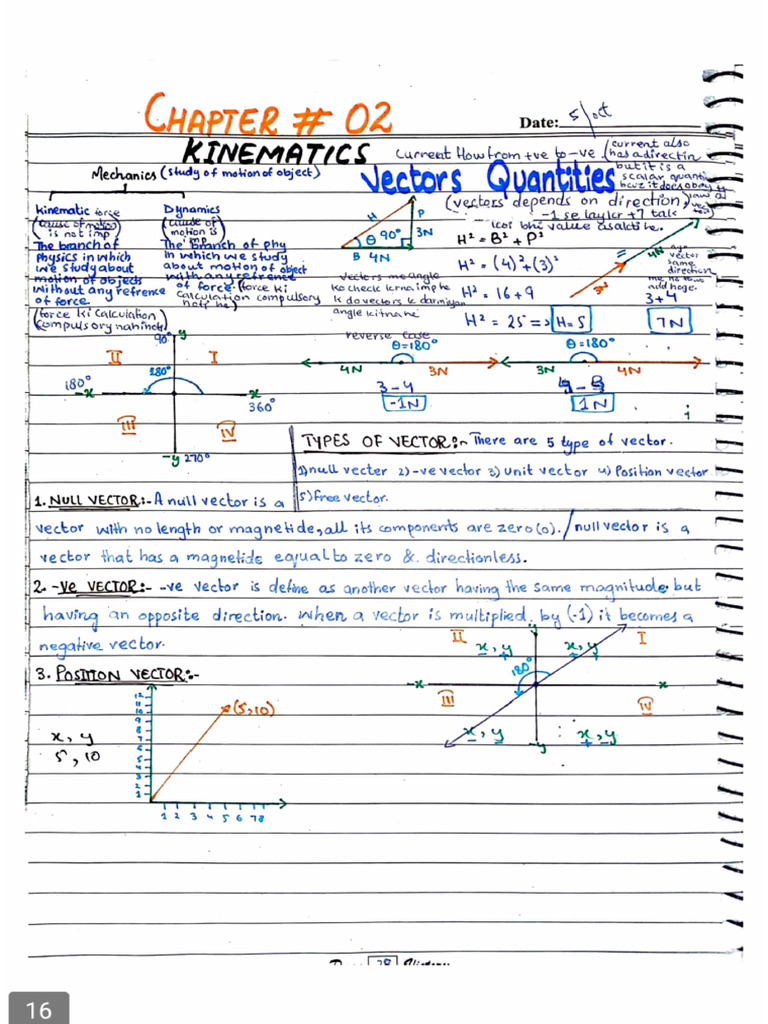 CHAPTER # 02
Date: 5/oct
KINEMATICS
Current flow from +ve to -ve (current also
has a directin
but it is a
scalar quanti
bcuz it does obey
law of
Mechanics (study of motion of object)
Vectors Quantities
(vectors depends on direction)
-1 se laykr +7 tak
koi bhi value
Kinematic force
(cause of motion)
is not imp
The branch of
Physics in which
we study about
motion of objects
without any refrence
of force.
(force ki calculation
compulsory nahi hoti)
Dynamics
(cause of
motion is
imp
The branch of Phy
in which we study
about motion of object
with any refrence
of force. (force ki
calculation compulsory
hoti he)
H
P
3N
θ 90°
B 4N
H² = B² + P²
H² = (4)² + (3)²
H² = 16 + 9
H² = 25 => H = 5
vectors me angle
ko check krna imp he
k do vectors k darmiyan
angle kitna he
3N
4N
=
vector
same
direction
me
add hoge.
3+4
7N
reverse case
θ=180°
4N 3N
3-4
-1N
θ=180°
3N 4N
1N
90° y
II I
180°
180° -x x
360°
III IV
-y 270°
TYPES OF VECTOR:- There are 5 type of vector.
1) null vecter 2) -ve vector 3) unit vector 4) Position vector
5) free vector.
1. NULL VECTOR:- A null vector is a
vector with no length or magnetide, all its components are zero (0). / null vector is a
vector that has a magnetide equal to zero & directionless.
2. -ve VECTOR:- -ve vector is define as another vector having the same magnitude but
having an opposite direction. when a vector is multiplied by (-1) it becomes a
negative vector.
3. POSITION VECTOR:-
x, y
5, 10
12
11
10
9
8
7
6
5
4
3
2
1
(5,10)
1 2 3 4 5 6 7 8
y
II x, y x, y I
180°
-x x
III IV
x, y x, y
-y
28
16